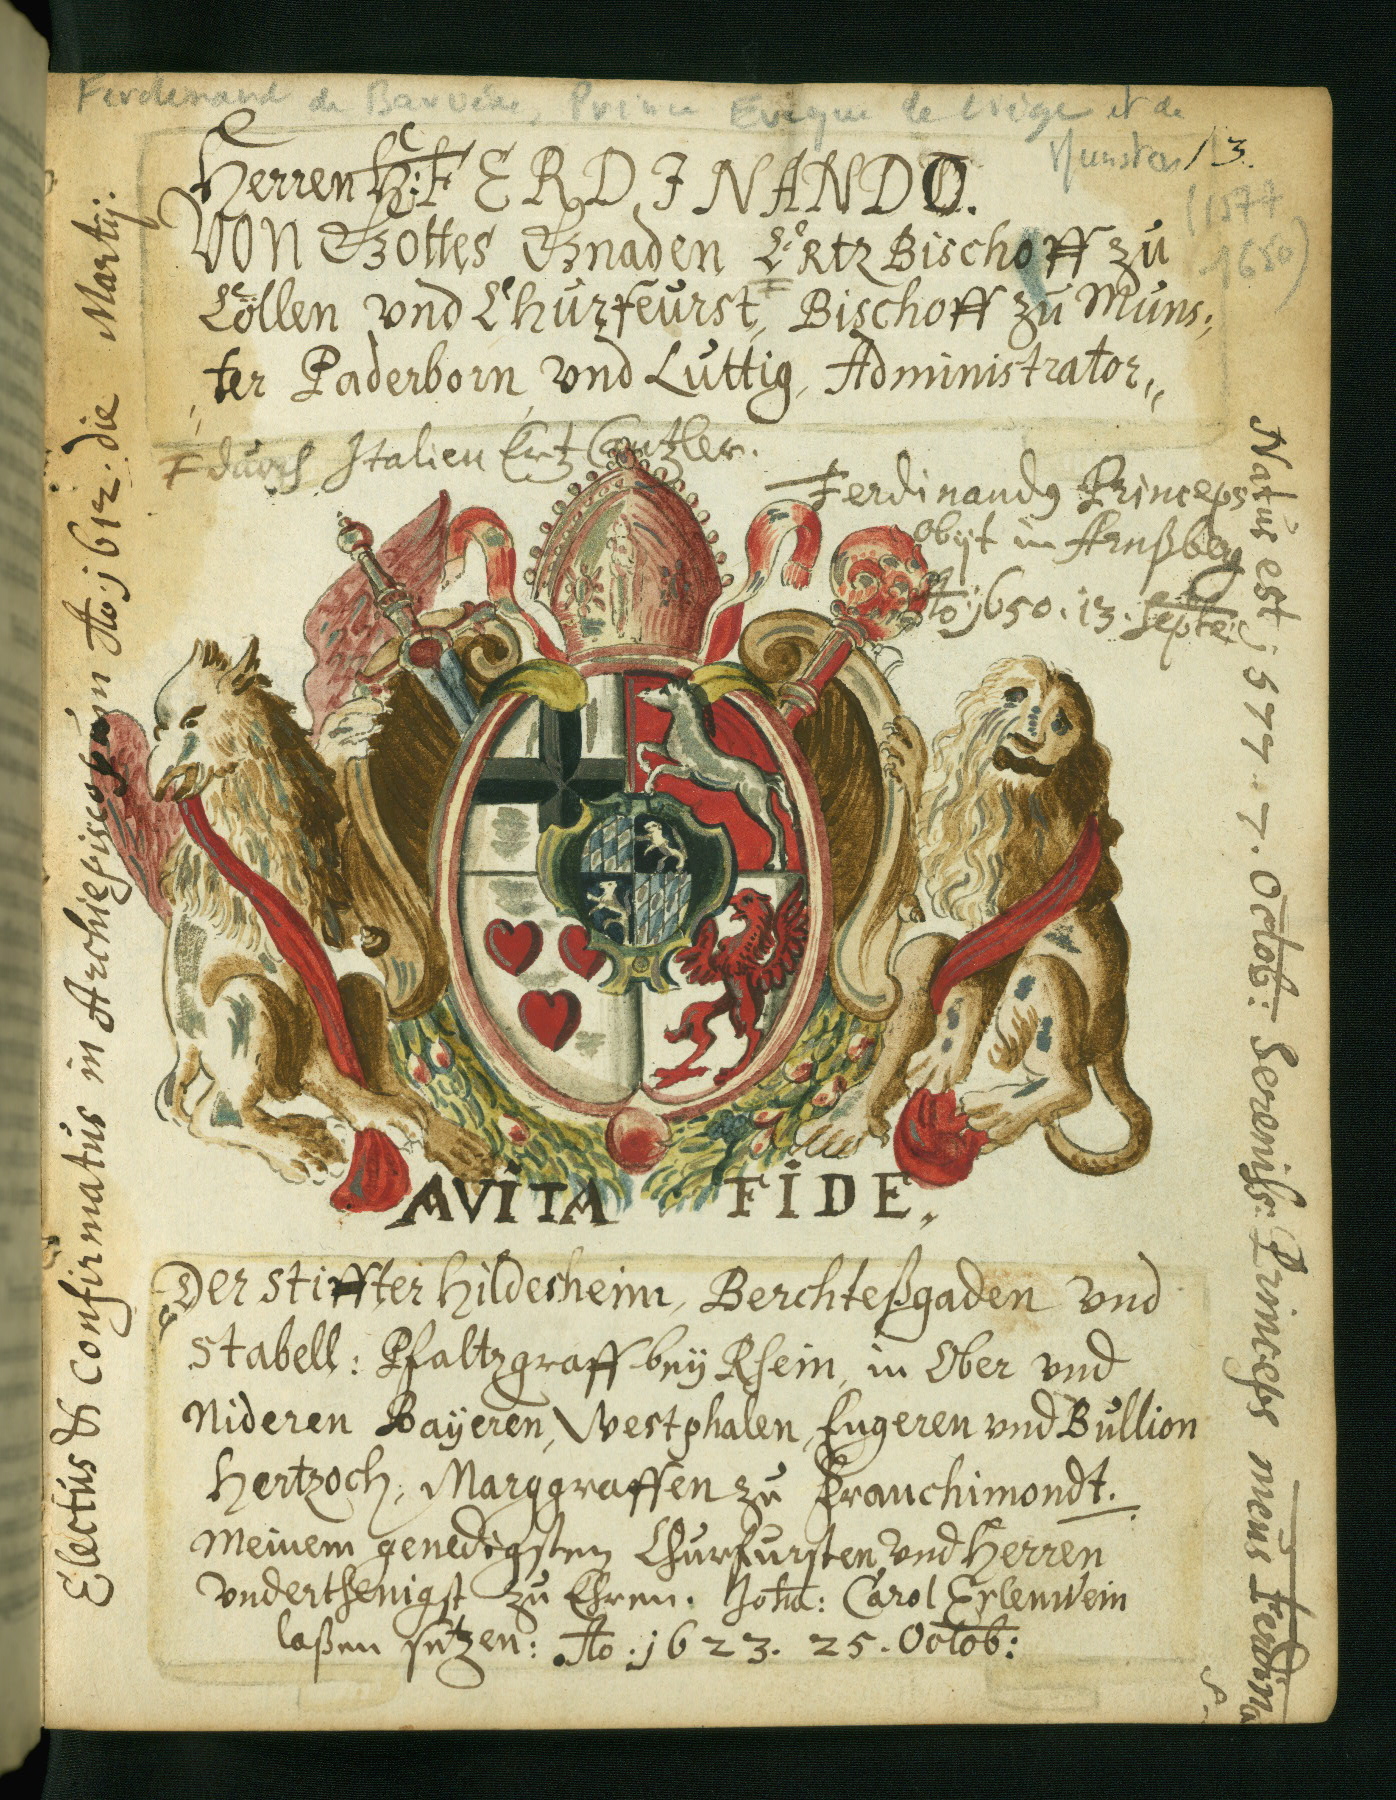 Ferdinand de Bavière, Prince Evêque de Liège et de
Munster
(1577
1650)
13.
Herren H: FERDINANDO.
Von Gottes Gnaden Ertz Bischoff zu
Cöllen vnd Churfeurst, Bischoff zu Muns:
ter Paderborn vnd Luttig, Administrator,,
durch Italien Ertz Cantzler.
Ferdinandꝰ Princeps
obijt in Arnßberg
Ao 1650. 13. Septe:
Electus & confirmatus in Archiepiscopum Ao 1612. die Martij.
Natus est 1577. 7. Octob: Sereniss: Princeps meus Ferdina
AVITA FIDE.
Der Stiffter Hildesheim, Berchteßgaden vnd
Stabell: Pfaltzgraff bey Rhein, in Ober vnd
Nideren Bayeren, Westphalen, Engeren vnd Bullion
Hertzoch, Marggraffen zu Franchimondt.
Meinem genedigsten Churfursten vnd Herren
vnderthenigst zu Ehren. Joha: Carol Erlenwein
laßen setzen: Ao. 1623. 25. Octob: